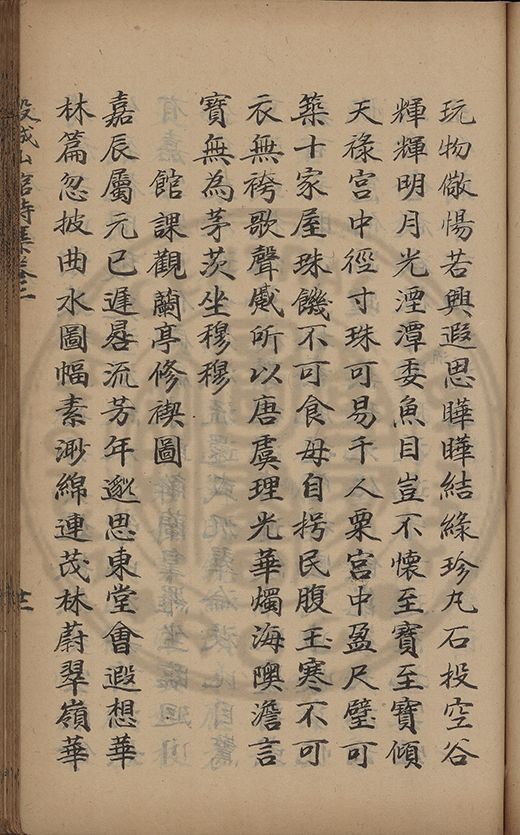 玩物儆惕若興遐思曄曄結綠珍丸石投空谷
輝輝明月光湮潭委魚目豈不懷至寶至寶傾
天祿宮中徑寸珠可易千人粟宮中盈尺璧可
築十家屋珠饑不可食毋自拐民腹玉寒不可
衣無袴歌聲慼所以唐虞理光華燭海隩澹言
寶無為茅茨坐穆穆
館課觀蘭亭修禊圖
嘉辰屬元巳遲晷流芳年邈思東堂會遐想華
林篇忽披曲水圖幅素渺綿連茂林蔚翠嶺華
穀城山館詩集卷二
廿二